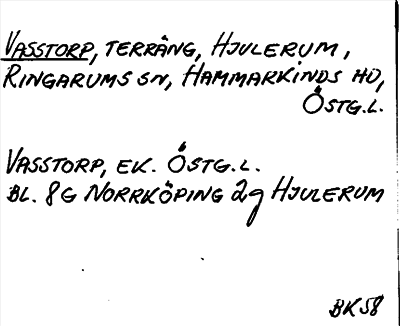 VASSTORP, TERRÄNG, HJULERUM,
RINGARUMS SN, HAMMARKINDS HD,
ÖSTG.L.
VASSTORP, EK. ÖSTG.L.
BL. 8G NORRKÖPING 2g HJULERUM
BK58